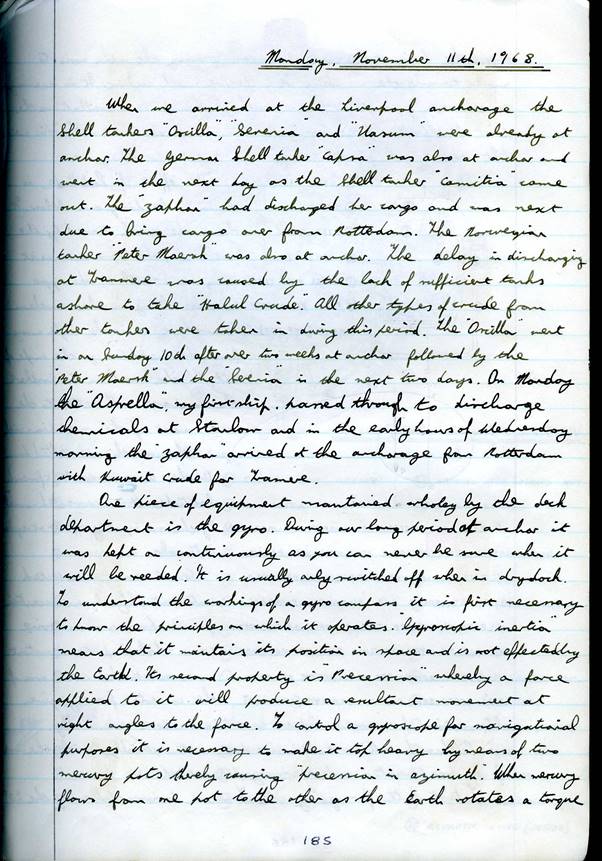 Monday, November 11th, 1968.
When we arrived at the Liverpool anchorage the
Shell tankers "Oscilla", "Serenia" and "Hasum" were already at
anchor. The German Shell tanker "Capsa" was also at anchor and
went in the next day as the Shell tanker "Camitia" came
out. The "Zaphon" had discharged her cargo and was next
due to bring cargo over from Rotterdam. The Norwegian
tanker "Peter Maersk" was also at anchor. The delay in discharging
at Tranmere was caused by the lack of sufficient tanks
ashore to take "Halul Crude". All other types of crude from
other tankers were taken in during this period. The "Oscilla" went
in on Sunday 10th after over two weeks at anchor followed by the
"Peter Maersk" and the "Serenia" in the next two days. On Monday
the "Asprella", my first ship, passed through to discharge
chemicals at Stanlow and in the early hours of Wednesday
morning the "Zaphon" arrived at the anchorage from Rotterdam
with Kuwait Crude for Tranmere.
One piece of equipment maintained wholey by the deck
department is the gyro. During our long period at anchor it
was kept on continuously as you can never be sure when it
will be needed. It is usually only switched off when in drydock.
To understand the workings of a gyro compass it is first necessary
to know the principles on which it operates. "Gyroscopic inertia"
means that it maintains its position in space and is not effected by
the Earth. Its second property is "Precession" whereby a force
applied to it will produce a resultant movement at
right angles to the force. To control a gyroscope for navigational
purposes it is necessary to make it top heavy by means of two
mercury pots thereby causing "precession in azimuth". When mercury
flows from one pot to the other as the Earth rotates a torque
185